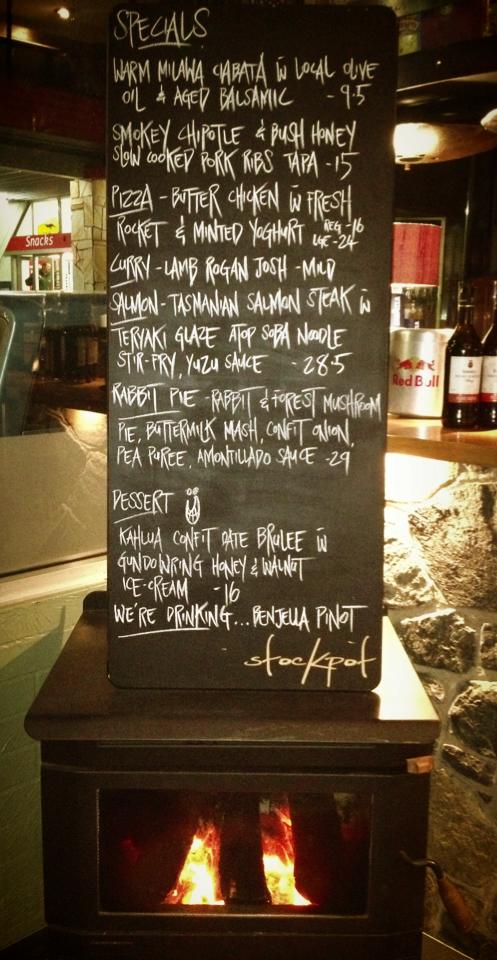 SPECIALS
WARM MILAWA CIABATA w̄ LOCAL OLIVE
OIL & AGED BALSAMIC - 9.5
SMOKEY CHIPOTLE & BUSH HONEY
SLOW COOKED PORK RIBS TAPA - 15
PIZZA - BUTTER CHICKEN w̄ FRESH
ROCKET & MINTED YOGHURT REG - 16
LGE - 24
CURRY - LAMB ROGAN JOSH - MILD
SALMON - TASMANIAN SALMON STEAK w̄
TERYAKI GLAZE ATOP SOBA NOODLE
STIR-FRY, YUZU SAUCE - 28.5
RABBIT PIE - RABBIT & FOREST MUSHROOM
PIE, BUTTERMILK MASH, CONFIT ONION,
PEA PUREE, AMONTILLADO SAUCE - 29
DESSERT
KAHLUA CONFIT DATE BRULEE w̄
GUNDOWRING HONEY & WALNUT
ICE-CREAM - 16
WE'RE DRINKING... BENJELLA PINOT
stockpot
Snacks
Red Bull